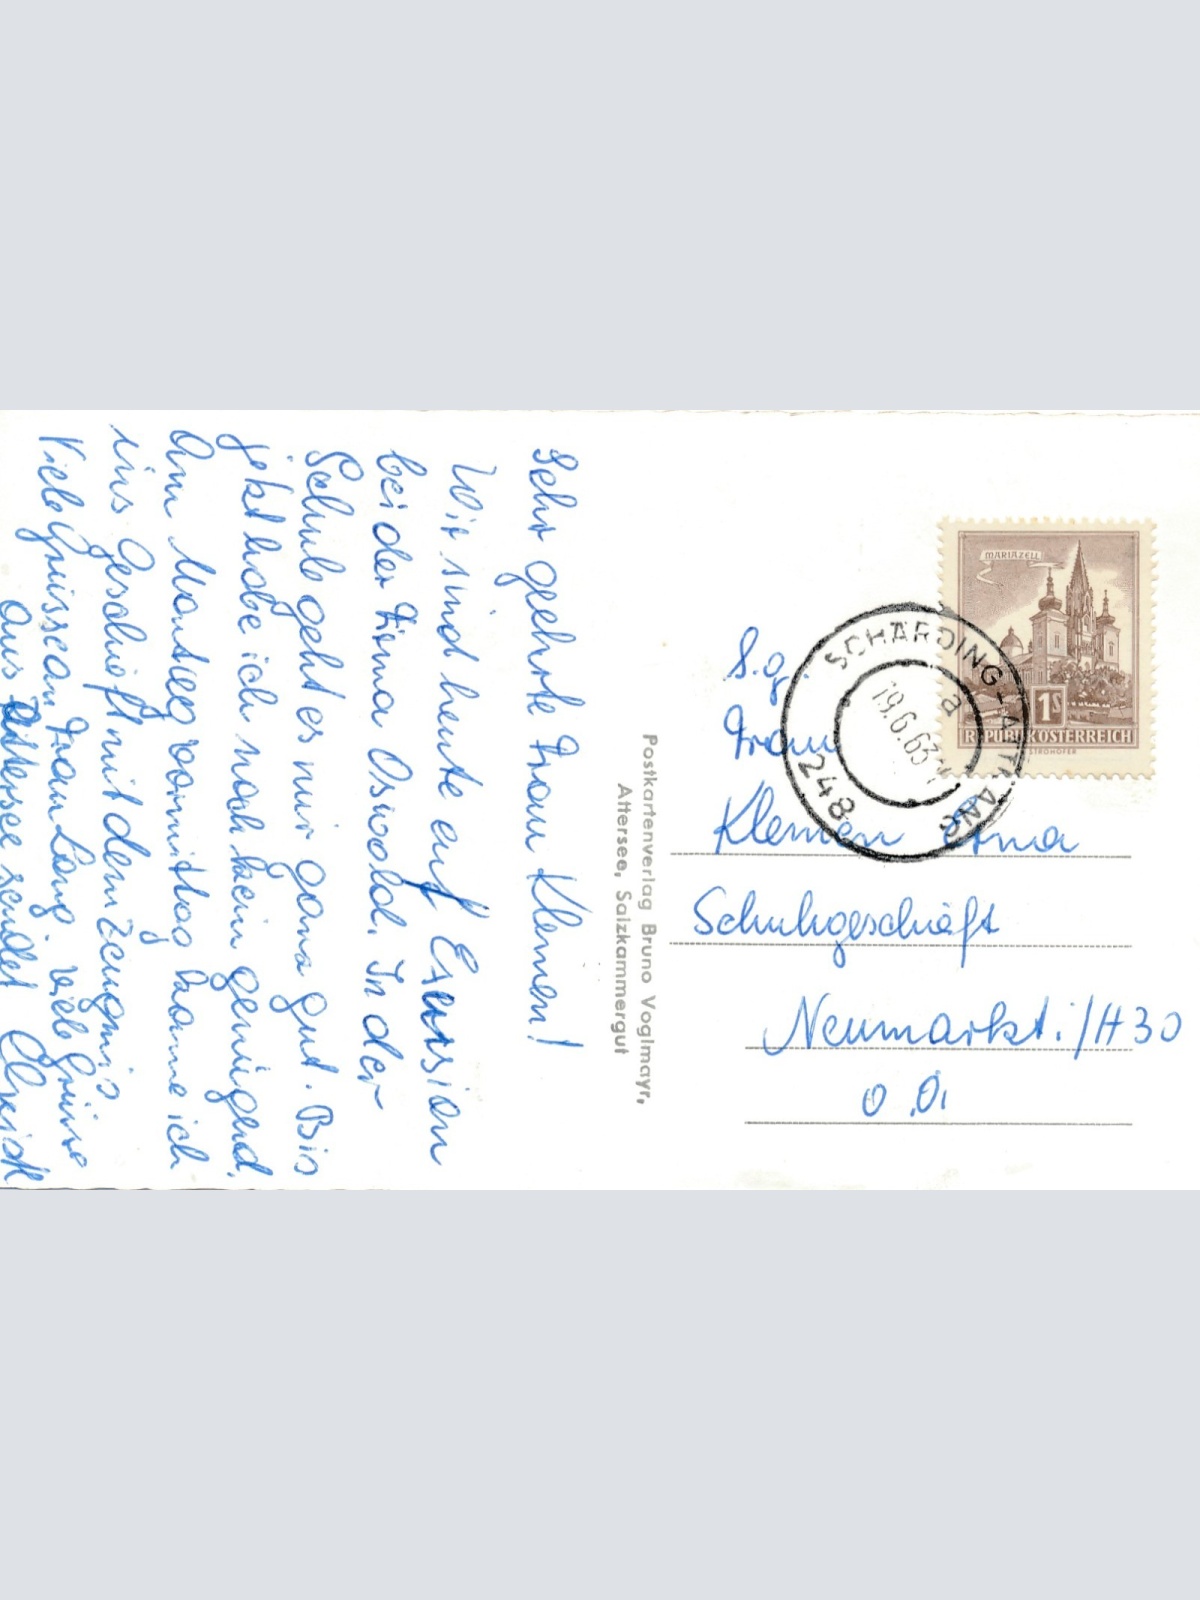 Sehr geehrte Frau Klemen!
Wir sind heute auf Exursion
bei der Firma Oswald. In der
Schule geht es mir ganz gut. Bis
jetzt habe ich noch kein genügend.
Am Montag vormittag komme ich
ins Geschäft mit dem Zeugnis
Viele Grüsse an Frau Lang. viele Grüsse
aus Attersee sendet
Postkartenverlag Bruno Voglmayr,
Attersee, Salzkammergut
MARIAZELL
1S
REPUBLIK ÖSTERREICH
STROHOFER
SCHÄRDING-ATTNANG
a
19.6.63
248
S.g.
Frau
Klemen Erna
Schuhgeschäft
Neumarkt i/H 30
O.Ö.